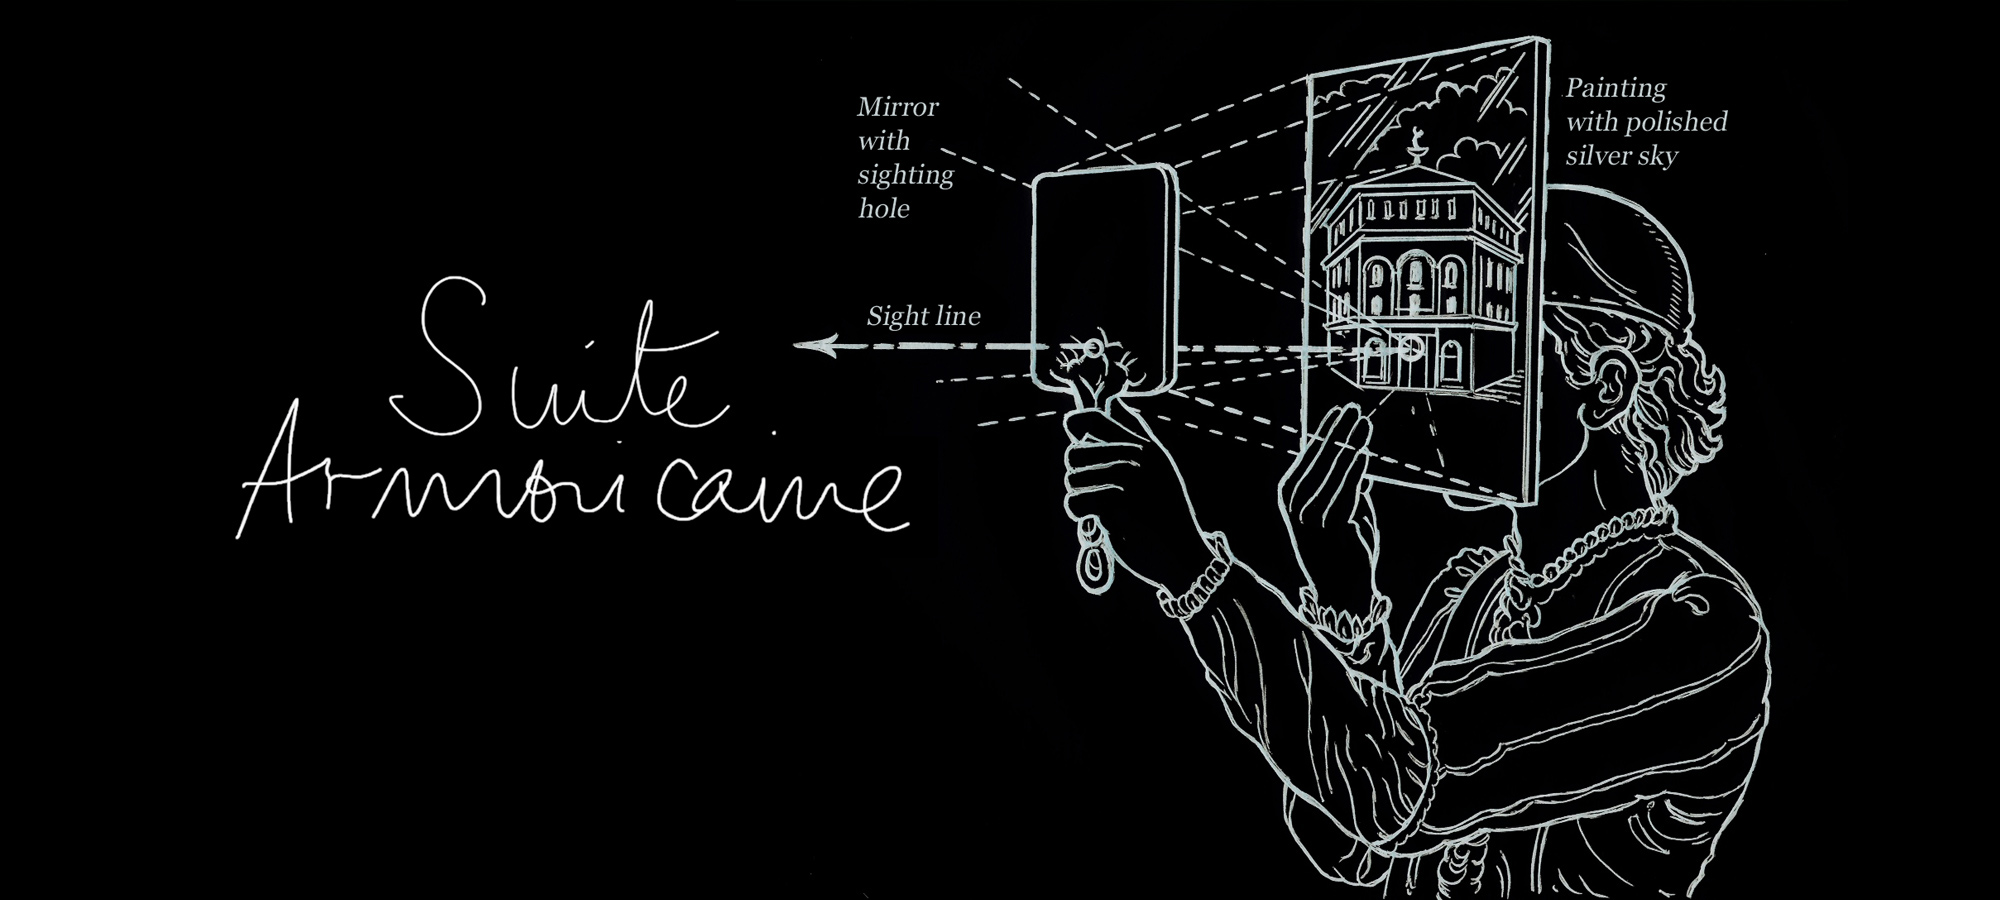 Suite
Armoricaine
Mirror
with
sighting
hole
Sight line
Painting
with polished
silver sky